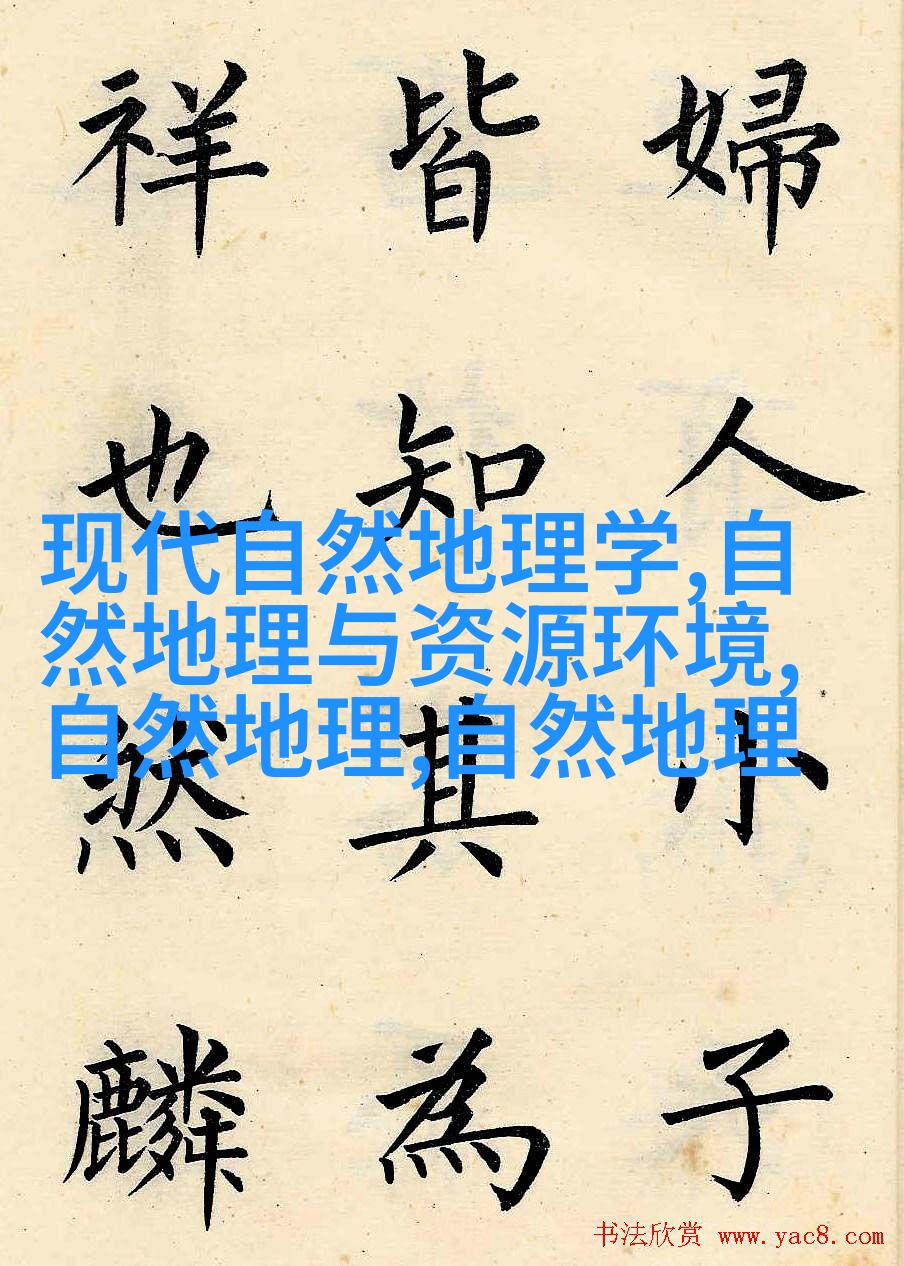 婦人小子
皆知其為
祥也然麟
现代自然地理学,自
然地理与资源环境,
自然地理,自然地理
书法欣赏 www.yac8.com